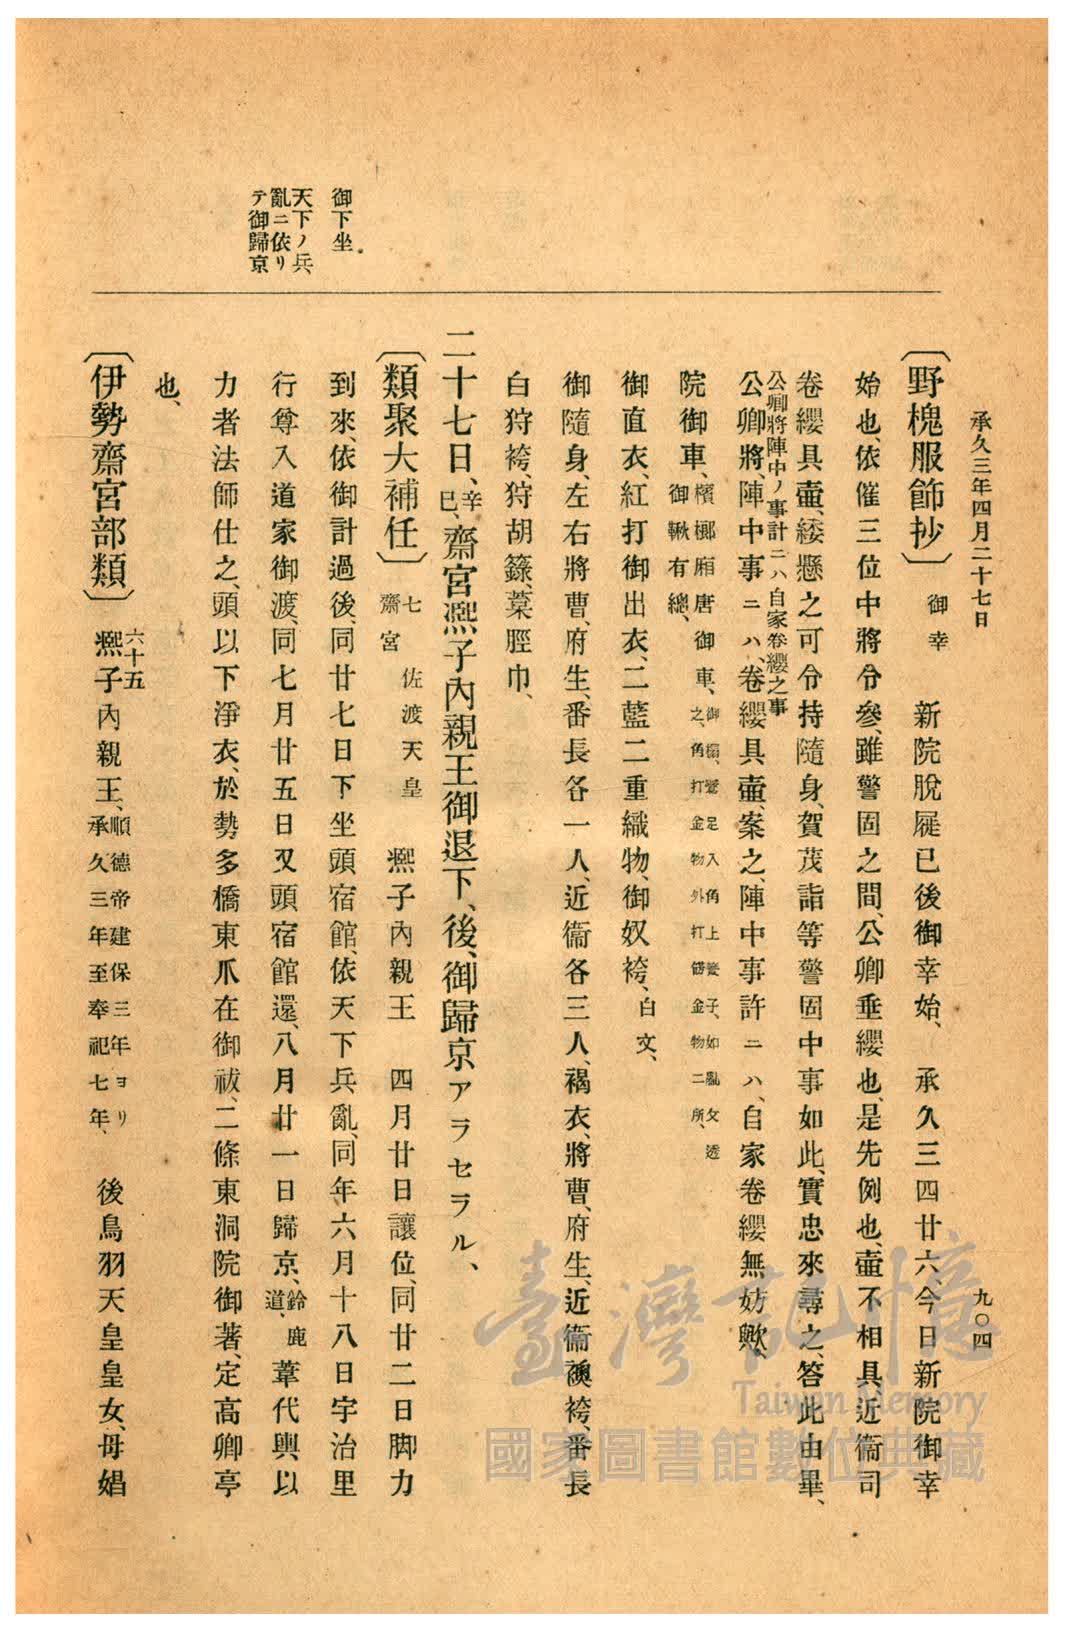 承久三年四月二十七日
九〇四
御下坐
天下ノ兵
亂ニ依リ
テ御歸京
〔野槐服飾抄〕 御幸 新院脫屣已後御幸始、 承久三四廿六、今日新院御幸
始也、依催三位中將令參、雖警固之間、公卿垂纓也、是先例也、壷不相具、近衞司
卷纓具壷、綏懸之可令持隨身、賀茂詣等警固中事如此、實忠來尋之、答此由畢、
公卿將陣中ノ事計ニハ自家卷纓之事
公卿將、陣中事ニハ、卷纓具壷、案之、陣中事許ニハ、自家卷纓無妨歟、
院御車、檳榔廂唐御車、御榻、鷺足入角上雙子、如亂文透
御鞦有總、之、角打金物外打餝金物二所、
御直衣、紅打御出衣、二藍二重織物、御奴袴、白文、
御隨身、左右將曹、府生、番長各一人、近衞各三人、褐衣、將曹、府生、近衞襖袴、番長
白狩袴、狩胡籙、藁脛巾、
二十七日、辛巳、齋宮凞子內親王御退下、後、御歸京アラセラル、
〔類聚大補任〕 七 佐渡天皇
齋宮
凞子內親王 四月廿日讓位、同廿二日脚力
到來、依御計過後、同廿七日下坐頭宿館、依天下兵亂、同年六月十八日宇治里
行尊入道家御渡、同七月廿五日又頭宿館還、八月廿一日歸京、鈴鹿道、葦代輿、以
力者法師仕之、頭以下淨衣、於勢多橋東爪在御祓、二條東洞院御著、定高卿亭
也、
〔伊勢齋宮部類〕 六十五
凞子內親王、順德帝建保三年ヨリ
承久三年至奉祀七年、
後鳥羽天皇皇女、母娼
臺灣記憶
Taiwan Memory
國家圖書館數位典藏